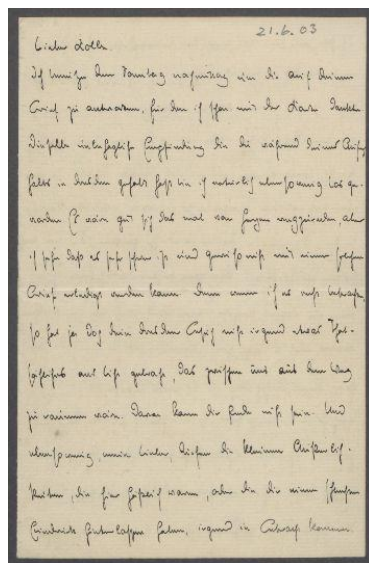 21.6.03
Lieber Kolbe.
Ich benutze den Sonntag nachmittag um dir auf deinen
Brief zu antworten, für den ich schon mit der Karte dankte.
Dieselbe unbehagliche Empfindung die du während deines Aufent-
halts in Dresden gehabt hast bin ich natürlich ebensowenig los ge-
worden. Es wäre gut sich das mal von Herzen wegzureden, aber
ich sehe daß es sehr schwer ist und gewiß nicht mit einem solchen
Brief erledigt werden kann. Denn wenn ich es recht betrachte,
so hat ja doch dein Dresdner Besuch nicht irgend etwas That-
sächliches ans Licht gebracht, das zwischen uns aus dem Weg
zu räumen wäre. Davon kann die Rede nicht sein. Und
ebensowenig, mein Lieber, dürfen die kleinen Äußerlich-
keiten, die hier häßlich waren, oder die dir einen schlechten
Eindruck hinterlassen haben, irgend in Betracht kommen.